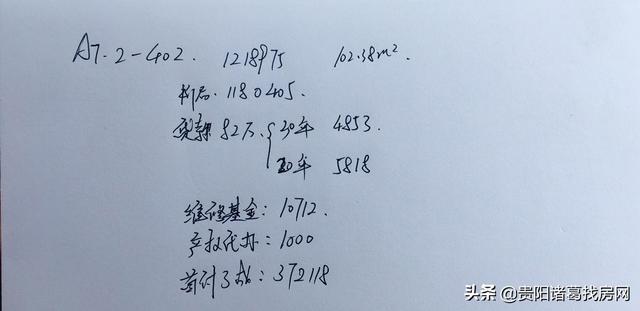 A7.2-402. 1218975 102.38m².
折后. 1180405.
贷款 82万. 30年 4853.
20年 5818
维修基金: 10712.
产权代办: 1000
首付3成: 372118
头条 @贵阳诸葛找房网